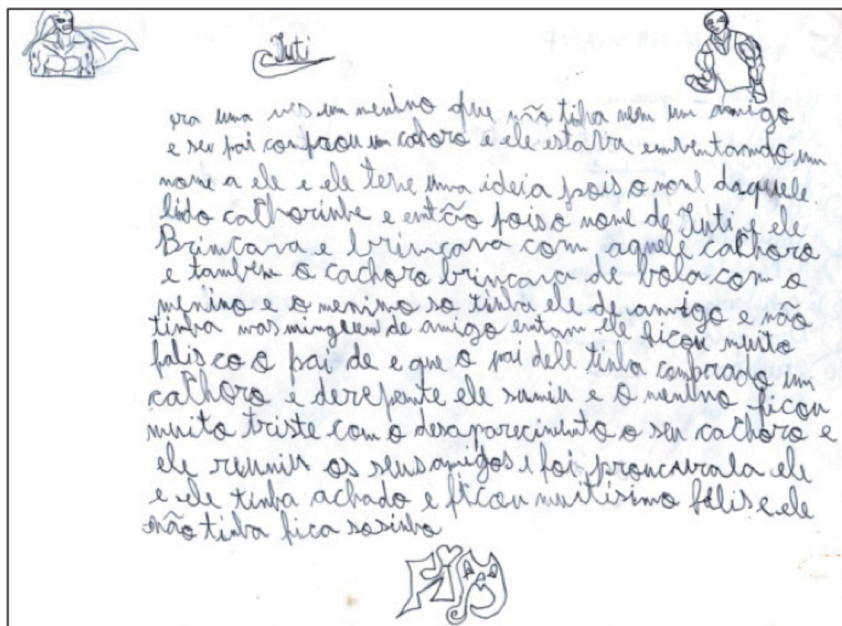 Tuti
era uma ves um menino que não tinha nem um amigo
e seu pai conprou um cahoro e ele estava emventamdo um
nome a ele e ele teve uma ideia pois o nome daquele
lido cachorinho e então pois o nome de Tuti e ele
Brimcava e brincava com aquele cachoro
e também o cachoro brincava de bola com o
menino e o menimo so tinha ele de amigo e não
tinha mas minguem de amigo entam ele ficou muito
falis co o pai de e que o pai dele tinha comprado um
cachoro e derepente ele sumiu e o menino ficou
muito triste com o desaparecimento o seu cachoro e
ele reuniu os seus amigos e foi ele
e ele tinha achado e ficou muitisimo félis e ele
não tinha fica sosinho
FiM